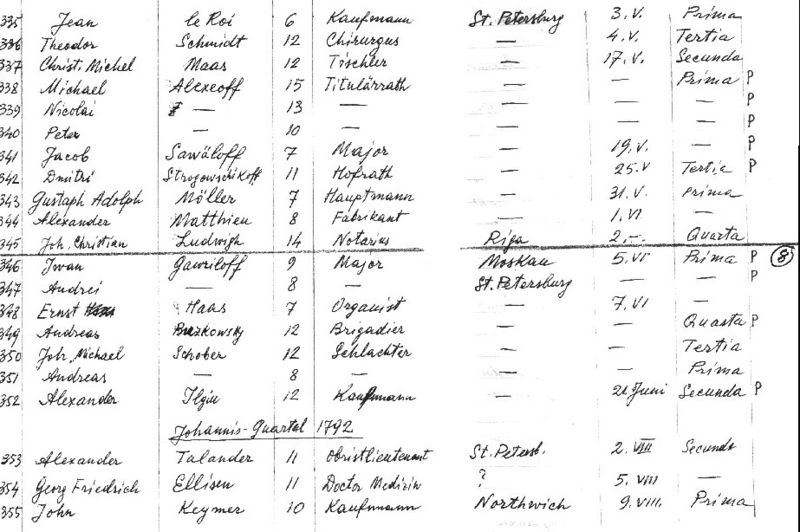 335 Jean le Roi 6 Kaufmann St. Petersburg 3. V. Prima
336 Theodor Schmidt 12 Chirurgus — 4. V. Tertia
337 Christ. Michel Maas 12 Tischler — 17. V. Secunda
338 Michael Alexeoff 15 Titulärrath — — Prima P
339 Nicolai — 13 — — — — P
340 Peter — 10 — — — — P
341 Jacob Sawäloff 7 Major — 19. V. — P
342 Dmitri Strogowschikoff 11 Hofrath — 25. V Tertia P
343 Gustaph Adolph Möller 7 Hauptmann — 31. V. Prima
344 Alexander Matthieu 8 Fabrikant — 1. VI —
345 Joh. Christian Ludwigh 14 Notarius Riga 2. — Quarta
346 Iwan Gawriloff 9 Major Moskau 5. VI Prima P 8
347 Andrei — 8 — St. Petersburg — — P
348 Ernst Haas 7 Organist — 7. VI —
349 Andreas Buzkowsky 12 Brigadier — — Quarta P
350 Joh. Michael Schober 12 Schlachter — — Tertia
351 Andreas — 8 — — — Prima
352 Alexander Ilgin 12 Kaufmann — 21 Juni Secunda P
Johannis-Quartal 1792
353 Alexander Talander 11 Obristlieutenant St. Petersb. 2. VIII Secunda
354 Georg Friedrich Ellisen 11 Doctor Medizin ? 5. VIII —
355 John Keymer 10 Kaufmann Northwich 9. VIII. Prima